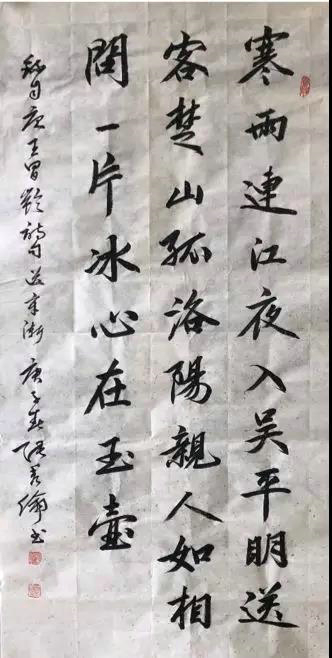 寒雨連江夜入吴平明送
客楚山孤洛陽親人如相
問一片冰心在玉壺
録自唐王昌齡詩句送辛漸 庚子春 書